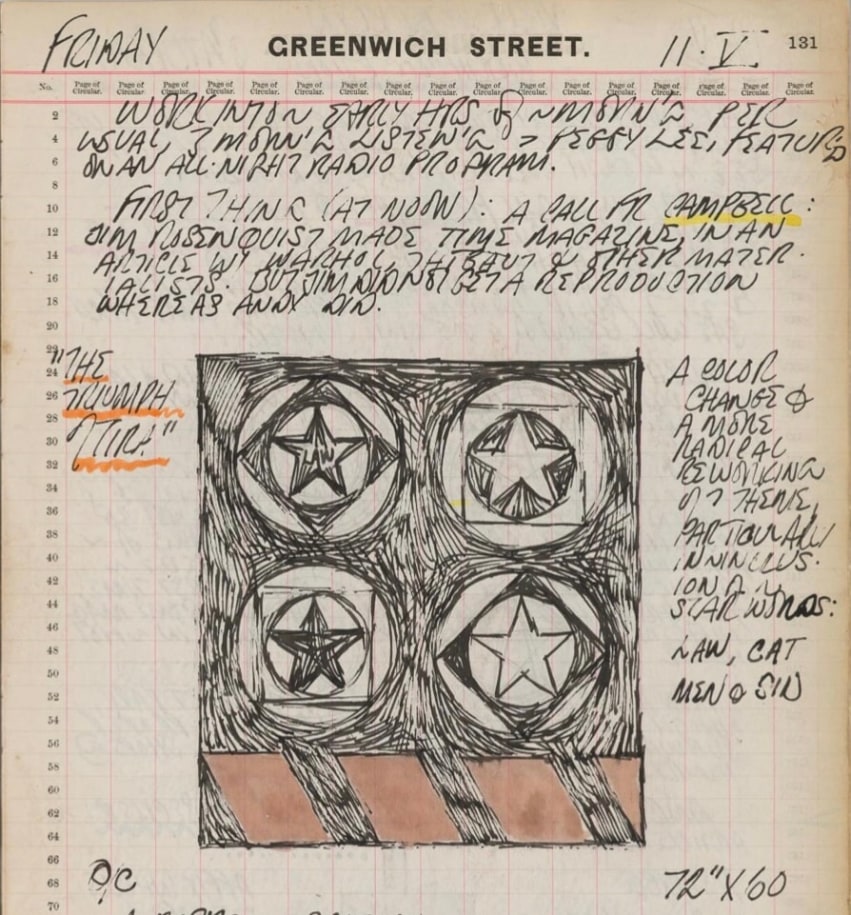 FRIDAY GREENWICH STREET. 11·V 131
No. Page of Circular. Page of Circular. Page of Circular. Page of Circular. Page of Circular. Page of Circular. Page of Circular. Page of Circular. Page of Circular. Page of Circular. Page of Circular. Page of Circular. Page of Circular. Page of Circular. Page of Circular. Page of Circular. Page of Circular.
2 WORK INTO EARLY HRS OF MORN'G, PER
4 USUAL, MORN'G LISTEN'G PEGGY LEE, FEATUR'D
6 ON AN ALL·NIGHT RADIO PROGRAM.
8
10 FIRST THING (AT NOON): A CALL FR CAMPBELL:
12 JIM ROSENQUIST MADE TIME MAGAZINE, IN AN
14 ARTICLE W/ WARHOL, THIEBAUT & OTHER MATER·
16 IALISTS. BUT JIM DID NOT GET A REPRODUCTION
18 WHEREAS ANDY DID.
20
22
24 "THE
26 TRIUMPH
28
30 TIRA"
32
34
36
38
40
42
44
46
48
50
52
54
56
58
60
62
64
66
68
70
A COLOR
CHANGE &
A MORE
RADICAL
REWORKING
OF THEME,
PARTICULARLY
IN INCLUS·
ION
STAR WORDS:
LAW, CAT
MEN & SIN
LAW
O/C 72" X 60